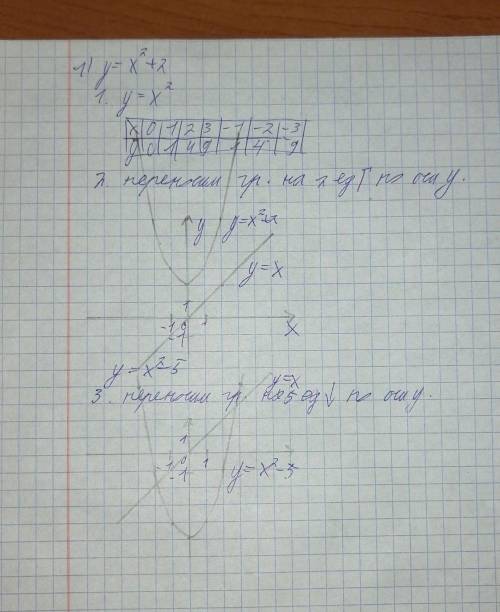 1) y = x²+2
1. y = x²
x 0 1 2 3 -1 -2 -3
y 0 1 4 9 1 4 9
2. переносим гр. на 2 ед ↑ по оси y.
y y=x²+2
y=x
1
-1 0 1 x
-1
y = x²-5
y=x
3. переносим гр. на 5 ед ↓ по оси y.
1
-1 0 1
-1 y = x²-5